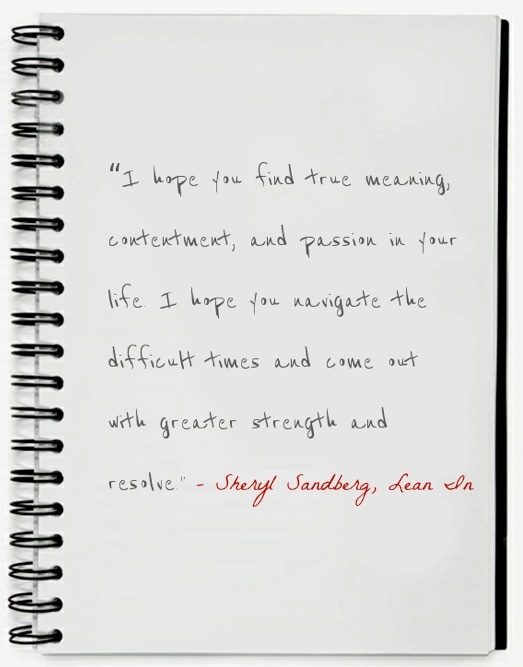 "I hope you find true meaning,
contentment, and passion in your
life. I hope you navigate the
difficult times and come out
with greater strength and
resolve." - Sheryl Sandberg, Lean In